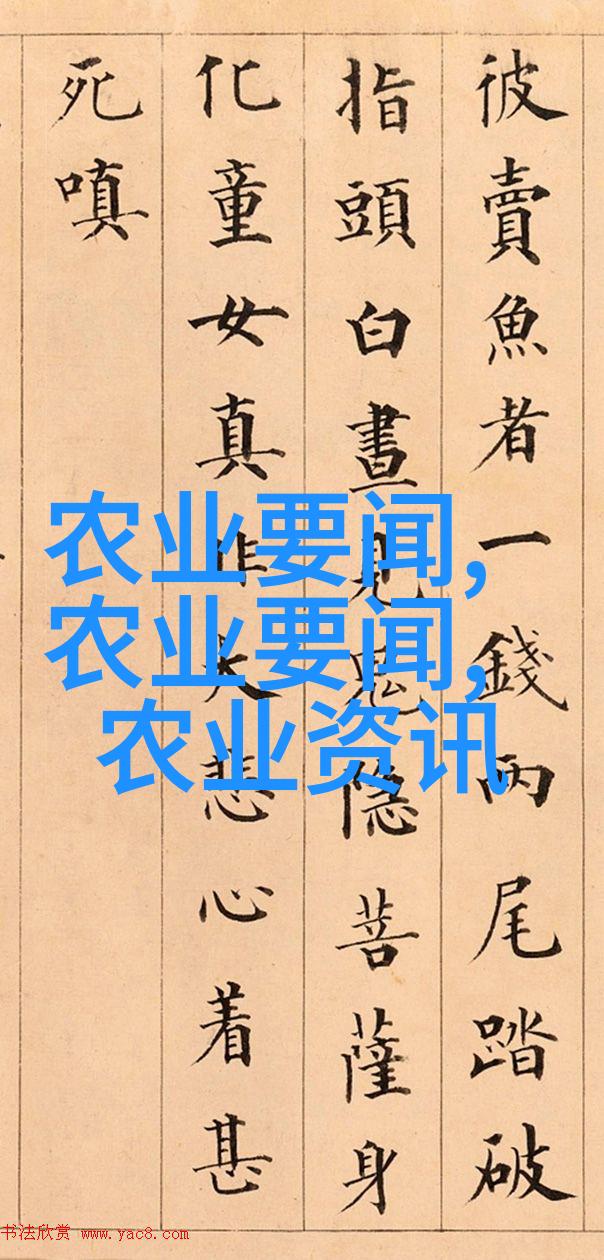 彼賣魚者一錢兩尾踏破
指頭白晝見鬼隐菩薩身
化童女真作大悲心着甚
死嗔
农业要闻,
农业要闻,
农业资讯
书法欣赏 www.yac8.com